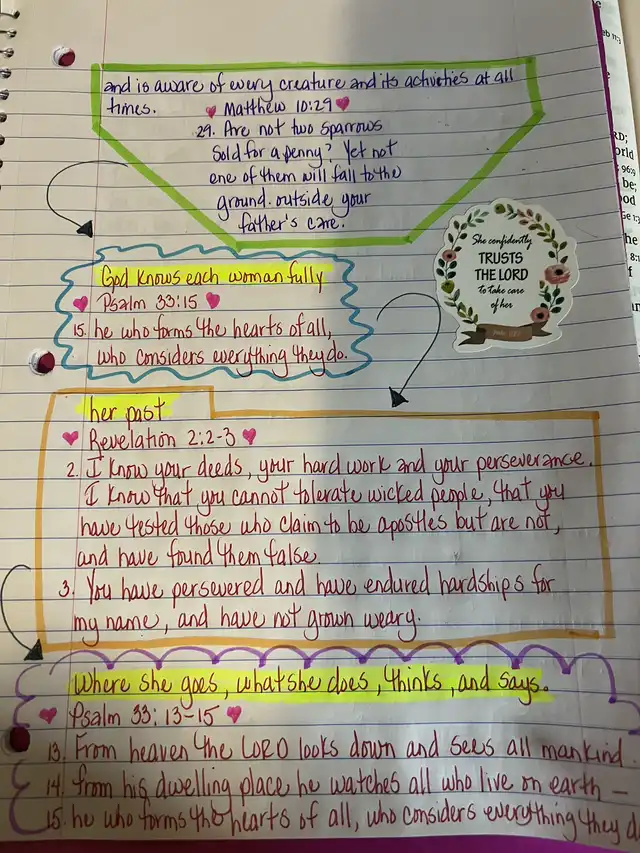 and is aware of every creature and its activities at all
times.
Matthew 10:29
29. Are not two sparrows
Sold for a penny? Yet not
one of them will fall to the
ground. outside your
father's care.
She confidently
TRUSTS
THE LORD
to take care
of her
God knows each woman fully
Psalm 33:15
15. he who forms the hearts of all,
who considers everything they do.
her past
Revelation 2:2-3
2. I know your deeds, your hard work and your perseverance.
I know that you cannot tolerate wicked people, that you
have tested those who claim to be apostles but are not,
and have found them false.
3. You have persevered and have endured hardships for
my name, and have not grown weary.
Where she goes, what she does, thinks, and says.
Psalm 33:13-15
13. From heaven the LORD looks down and sees all mankind.
14. from his dwelling place he watches all who live on earth –
15. he who forms the hearts of all, who considers everything they d